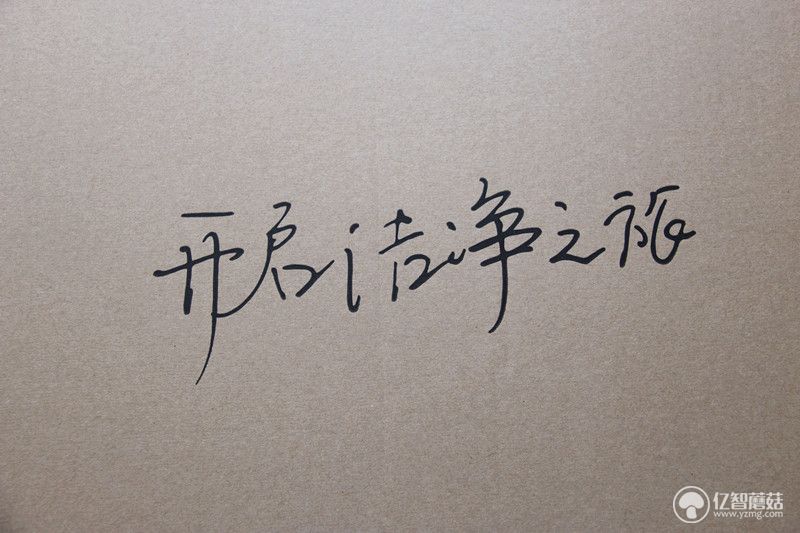 开启洁净之旅
亿智蘑菇
www.yzmg.com